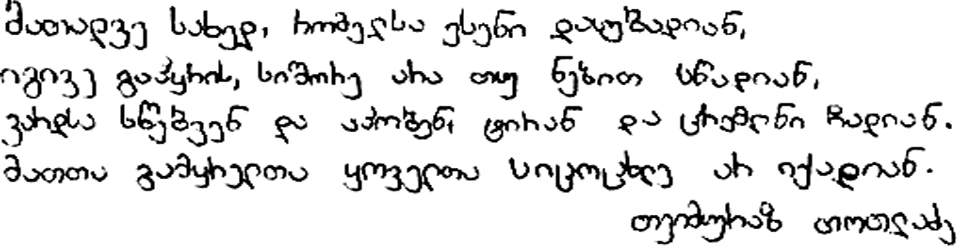 მათადვე სახედ, რომელსა ესენი დაუბადიან,
იგივე გაჰყრის, სიშორე არა თუ ნებით სწადიან,
ვარდსა სწებვენ და აპობენ, ტირან და ცრემლნი ჩადიან.
მათთა გამყრელთა ყოველთა სიცოცხლე არ იქადიან.
თეიმურაზ თოთლაძე